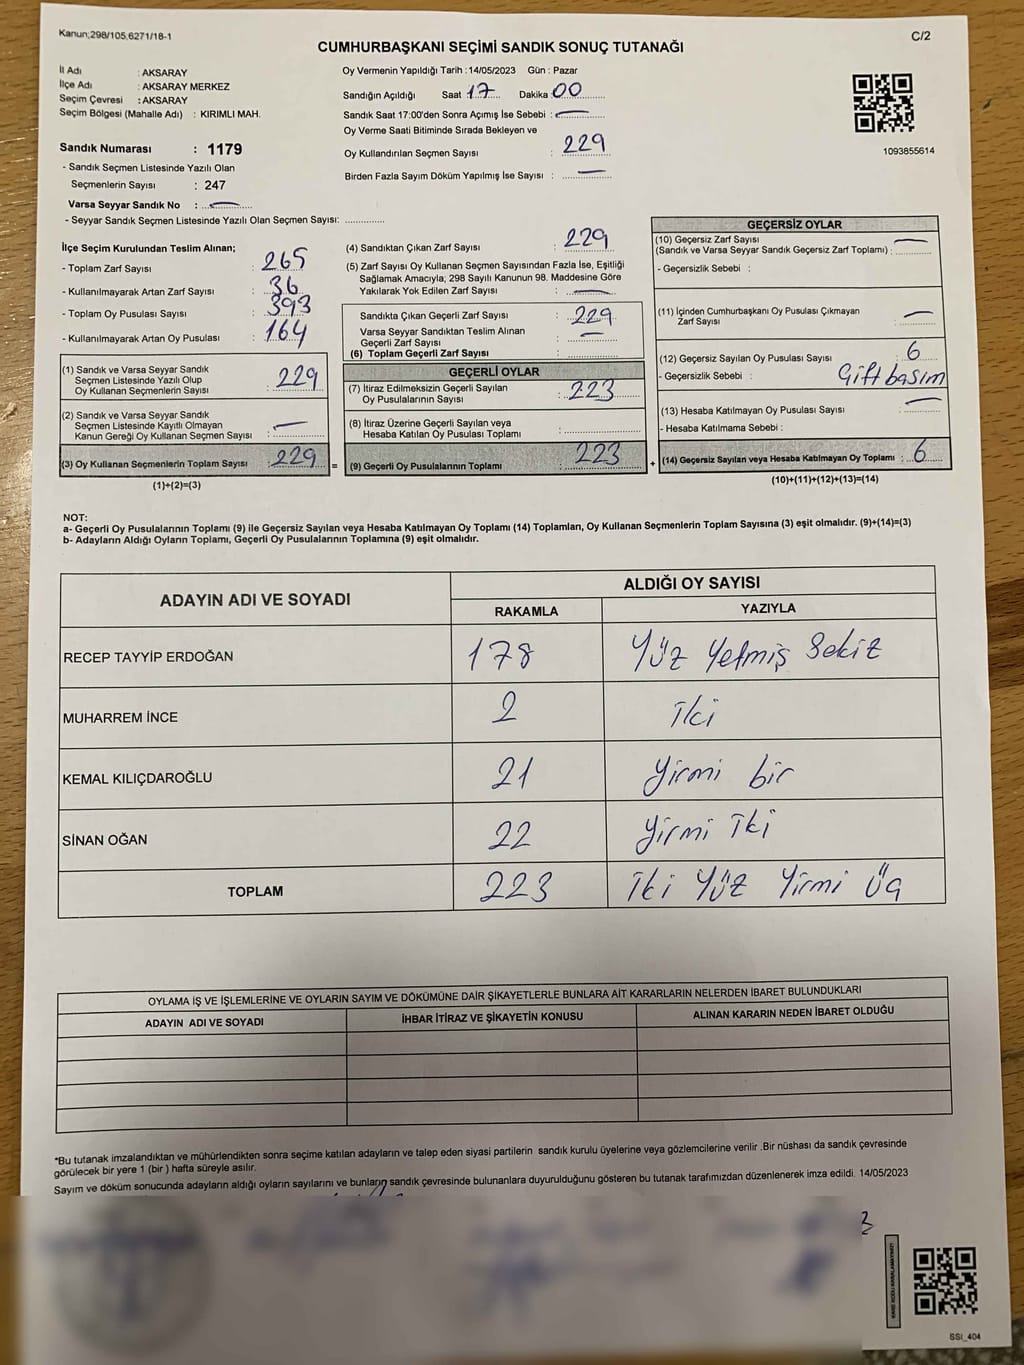 Kanun;298/105,6271/18-1
C/2
CUMHURBAŞKANI SEÇİMİ SANDIK SONUÇ TUTANAĞI
İl Adı : AKSARAY
İlçe Adı : AKSARAY MERKEZ
Seçim Çevresi : AKSARAY
Seçim Bölgesi (Mahalle Adı) : KIRIMLI MAH.
Sandık Numarası : 1179
- Sandık Seçmen Listesinde Yazılı Olan
Seçmenlerin Sayısı : 247
Varsa Seyyar Sandık No : —
- Seyyar Sandık Seçmen Listesinde Yazılı Olan Seçmen Sayısı: ..............
Oy Vermenin Yapıldığı Tarih :14/05/2023 Gün : Pazar
Sandığın Açıldığı Saat 17 Dakika 00
Sandık Saat 17:00'den Sonra Açımış İse Sebebi : —
Oy Verme Saati Bitiminde Sırada Bekleyen ve
Oy Kullandırılan Seçmen Sayısı : 229
Birden Fazla Sayım Döküm Yapılmış İse Sayısı : —
1093855614
İlçe Seçim Kurulundan Teslim Alınan;
- Toplam Zarf Sayısı : 265
- Kullanılmayarak Artan Zarf Sayısı : 36
- Toplam Oy Pusulası Sayısı : 393
- Kullanılmayarak Artan Oy Pusulası : 164
(1) Sandık ve Varsa Seyyar Sandık
Seçmen Listesinde Yazılı Olup
Oy Kullanan Seçmenlerin Sayısı : 229
(2) Sandık ve Varsa Seyyar Sandık
Seçmen Listesinde Kayıtlı Olmayan
Kanun Gereği Oy Kullanan Seçmen Sayısı : —
(3) Oy Kullanan Seçmenlerin Toplam Sayısı : 229 =
(1)+(2)=(3)
(4) Sandıktan Çıkan Zarf Sayısı : 229
(5) Zarf Sayısı Oy Kullanan Seçmen Sayısından Fazla İse, Eşitliği
Sağlamak Amacıyla; 298 Sayılı Kanunun 98. Maddesine Göre
Yakılarak Yok Edilen Zarf Sayısı : —
Sandıkta Çıkan Geçerli Zarf Sayısı : 229
Varsa Seyyar Sandıktan Teslim Alınan
Geçerli Zarf Sayısı : —
(6) Toplam Geçerli Zarf Sayısı : ..............
GEÇERLİ OYLAR
(7) İtiraz Edilmeksizin Geçerli Sayılan
Oy Pusulalarının Sayısı : 223
(8) İtiraz Üzerine Geçerli Sayılan veya
Hesaba Katılan Oy Pusulası Toplamı : ..............
(9) Geçerli Oy Pusulalarının Toplamı : 223 +
GEÇERSİZ OYLAR
(10) Geçersiz Zarf Sayısı
(Sandık ve Varsa Seyyar Sandık Geçersiz Zarf Toplamı) : —
- Geçersizlik Sebebi :
(11) İçinden Cumhurbaşkanı Oy Pusulası Çıkmayan
Zarf Sayısı : —
(12) Geçersiz Sayılan Oy Pusulası Sayısı : 6
- Geçersizlik Sebebi : Çift basım
(13) Hesaba Katılmayan Oy Pusulası Sayısı : —
- Hesaba Katılmama Sebebi :
(14) Geçersiz Sayılan veya Hesaba Katılmayan Oy Toplamı : 6
(10)+(11)+(12)+(13)=(14)
NOT:
a- Geçerli Oy Pusulalarının Toplamı (9) ile Geçersiz Sayılan veya Hesaba Katılmayan Oy Toplamı (14) Toplamları, Oy Kullanan Seçmenlerin Toplam Sayısına (3) eşit olmalıdır. (9)+(14)=(3)
b- Adayların Aldığı Oyların Toplamı, Geçerli Oy Pusulalarının Toplamına (9) eşit olmalıdır.
ADAYIN ADI VE SOYADI ALDIĞI OY SAYISI
RAKAMLA YAZIYLA
RECEP TAYYİP ERDOĞAN 178 Yüz Yetmiş Sekiz
MUHARREM İNCE 2 İki
KEMAL KILIÇDAROĞLU 21 Yirmi bir
SİNAN OĞAN 22 Yirmi İki
TOPLAM 223 İki Yüz Yirmi Üç
OYLAMA İŞ VE İŞLEMLERİNE VE OYLARIN SAYIM VE DÖKÜMÜNE DAİR ŞİKAYETLERLE BUNLARA AİT KARARLARIN NELERDEN İBARET BULUNDUKLARI
ADAYIN ADI VE SOYADI İHBAR İTİRAZ VE ŞİKAYETİN KONUSU ALINAN KARARIN NEDEN İBARET OLDUĞU
*Bu tutanak imzalandıktan ve mühürlendikten sonra seçime katılan adayların ve talep eden siyasi partilerin sandık kurulu üyelerine veya gözlemcilerine verilir .Bir nüshası da sandık çevresinde
görülecek bir yere 1 (bir ) hafta süreyle asılır.
Sayım ve döküm sonucunda adayların aldığı oyların sayılarını ve bunların sandık çevresinde bulunanlara duyurulduğunu gösteren bu tutanak tarafımızdan düzenlenerek imza edildi. 14/05/2023
3
SSI_404